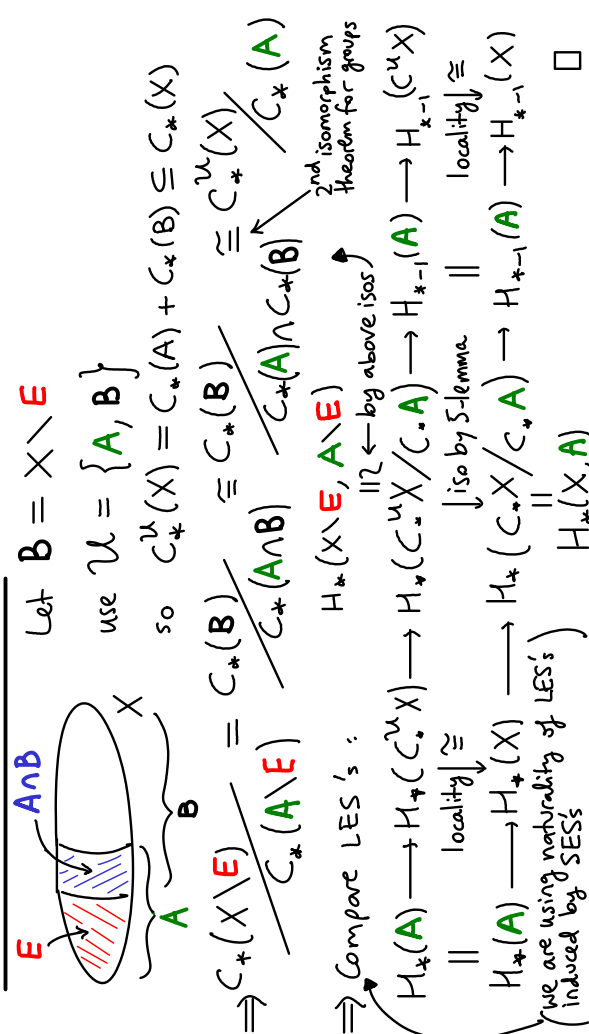 E
A∩B
X
A
B
Let B = X \ E
use 𝒰 = {A, B}
so C⁎^𝒰(X) = C⁎(A) + C⁎(B) ⊆ C⁎(X)
⇒ C⁎(X\E) / C⁎(A\E) = C⁎(B) / C⁎(A∩B) ≅ C⁎(B) / C⁎(A)∩C⁎(B) ≅ C⁎^𝒰(X) / C⁎(A)
2nd isomorphism
theorem for groups
⇒ Compare LES's :
H⁎(X\E, A\E)
≅ ← by above isos
H⁎(A) → H⁎(C.^𝒰X) → H⁎(C.^𝒰X/C.A) → H⁎₋₁(A) → H⁎₋₁(C^𝒰X)
‖ locality ↓ ≅ ↓ iso by 5-lemma ‖ locality ↓ ≅
H⁎(A) → H⁎(X) → H⁎(C.X/C.A) → H⁎₋₁(A) → H⁎₋₁(X)
‖
H⁎(X, A)
(we are using naturality of LES's
induced by SES's)
□